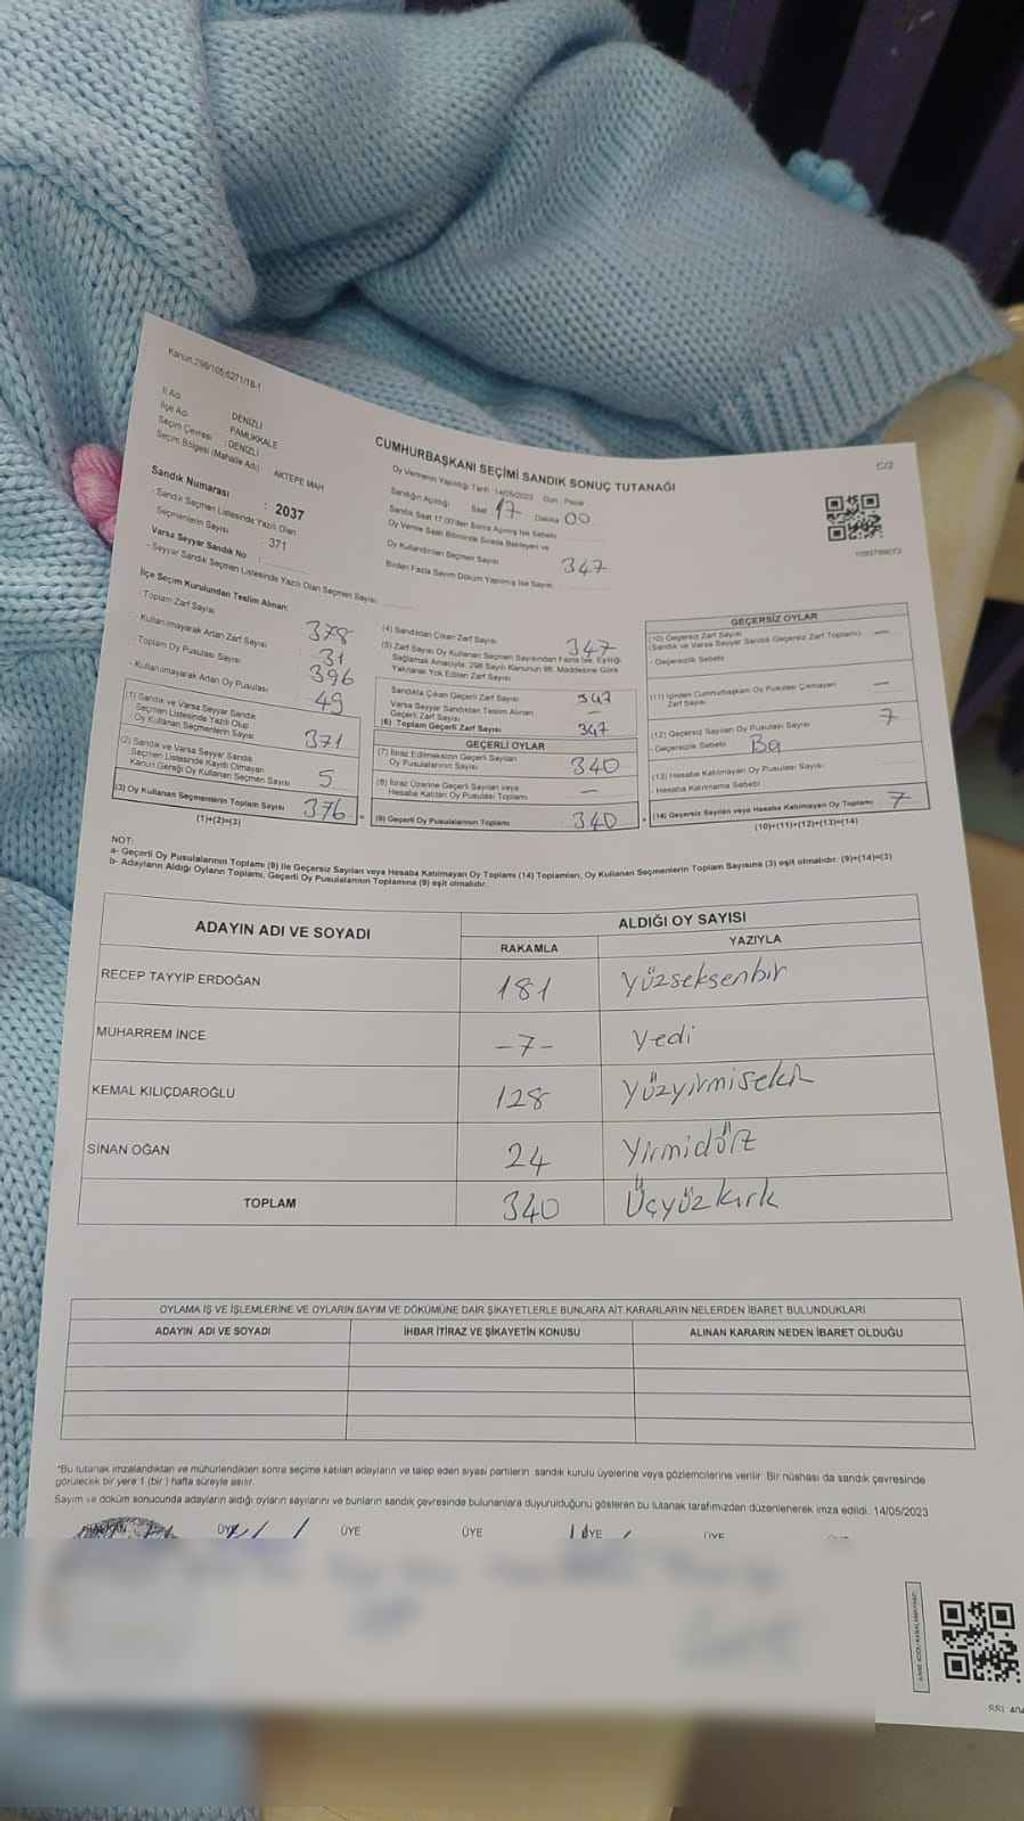 Kanun:298/105;6271/18-1
İl Adı : DENİZLİ
İlçe Adı : PAMUKKALE
Seçim Çevresi : DENİZLİ
Seçim Bölgesi (Mahalle Adı) : AKTEPE MAH
Sandık Numarası : 2037
Sandık Seçmen Listesinde Yazılı Olan
Seçmenlerin Sayısı : 371
Varsa Seyyar Sandık No
- Seyyar Sandık Seçmen Listesinde Yazılı Olan Seçmen Sayısı
CUMHURBAŞKANI SEÇİMİ SANDIK SONUÇ TUTANAĞI
Oy Vermenin Yapıldığı Tarih : 14/05/2023 Gün : Pazar
Sandığın Açıldığı Saat 17 Dakika 00
Sandık Saat 17.00'den Sonra Açılmış İse Sebebi
Oy Verme Saati Bitiminde Sırada Bekleyen ve
Oy Kullandırılan Seçmen Sayısı 347
Birden Fazla Sayım Döküm Yapılmış İse Sayısı
İlçe Seçim Kurulundan Teslim Alınan:
- Toplam Zarf Sayısı 378
- Kullanılmayarak Artan Zarf Sayısı 31
- Toplam Oy Pusulası Sayısı 396
- Kullanılmayarak Artan Oy Pusulası 49
(1) Sandık ve Varsa Seyyar Sandık
Seçmen Listesinde Yazılı Olup
Oy Kullanan Seçmenlerin Sayısı 371
(2) Sandık ve Varsa Seyyar Sandık
Seçmen Listesinde Kaydı Olmayan
Kanun Gereği Oy Kullanan Seçmen Sayısı 5
(3) Oy Kullanan Seçmenlerin Toplam Sayısı 376
(1)+(2)=(3)
(4) Sandıktan Çıkan Zarf Sayısı 347
(5) Zarf Sayısı Oy Kullanan Seçmen Sayısından Fazla İse, Eşitliği
Sağlamak Amacıyla, 298 Sayılı Kanunun 98. Maddesine Göre
Yakılarak Yok Edilen Zarf Sayısı
Sandıkta Çıkan Geçerli Zarf Sayısı 347
Varsa Seyyar Sandıktan Teslim Alınan
Geçerli Zarf Sayısı —
(6) Toplam Geçerli Zarf Sayısı 347
GEÇERLİ OYLAR
(7) İtiraz Edilmeksizin Geçerli Sayılan
Oy Pusulalarının Sayısı 340
(8) İtiraz Üzerine Geçerli Sayılan veya
Hesaba Katılan Oy Pusulası Toplamı —
(9) Geçerli Oy Pusulalarının Toplamı 340
GEÇERSİZ OYLAR
(10) Geçersiz Zarf Sayısı
(Sandık ve Varsa Seyyar Sandık Geçersiz Zarf Toplamı) —
- Geçersizlik Sebebi
(11) İçinden Cumhurbaşkanı Oy Pusulası Çıkmayan
Zarf Sayısı —
(12) Geçersiz Sayılan Oy Pusulası Sayısı 7
- Geçersizlik Sebebi
(13) Hesaba Katılmayan Oy Pusulası Sayısı
- Hesaba Katılmama Sebebi
(14) Geçersiz Sayılan veya Hesaba Katılmayan Oy Toplamı 7
(10)+(11)+(12)+(13)=(14)
NOT:
a- Geçerli Oy Pusulalarının Toplamı (9) ile Geçersiz Sayılan veya Hesaba Katılmayan Oy Toplamı (14) Toplamları, Oy Kullanan Seçmenlerin Toplam Sayısına (3) eşit olmalıdır. (9)+(14)=(3)
b- Adayların Aldığı Oyların Toplamı, Geçerli Oy Pusulalarının Toplamına (9) eşit olmalıdır.
ADAYIN ADI VE SOYADI ALDIĞI OY SAYISI
RAKAMLA YAZIYLA
RECEP TAYYİP ERDOĞAN 181 Yüzseksenbir
MUHARREM İNCE -7- Yedi
KEMAL KILIÇDAROĞLU 128 Yüzyirmisekiz
SİNAN OĞAN 24 Yirmidört
TOPLAM 340 Üçyüzkırk
OYLAMA İŞ VE İŞLEMLERİNE VE OYLARIN SAYIM VE DÖKÜMÜNE DAİR ŞİKAYETLERLE BUNLARA AİT KARARLARIN NELERDEN İBARET BULUNDUKLARI
ADAYIN ADI VE SOYADI İHBAR İTİRAZ VE ŞİKAYETİN KONUSU ALINAN KARARIN NEDEN İBARET OLDUĞU
*Bu tutanak imzalandıktan ve mühürlendikten sonra seçime katılan adayların ve talep eden siyasi partilerin sandık kurulu üyelerine veya gözlemcilerine verilir. Bir nüshası da sandık çevresinde
görülecek bir yere 1 (bir) hafta süreyle asılır.
Sayım ve döküm sonucunda adayların aldığı oyların sayılarını ve bunların sandık çevresinde bulunanlara duyurulduğunu gösteren bu tutanak tarafımızdan düzenlenerek imza edildi. 14/05/2023
ÜYE ÜYE ÜYE ÜYE ÜYE